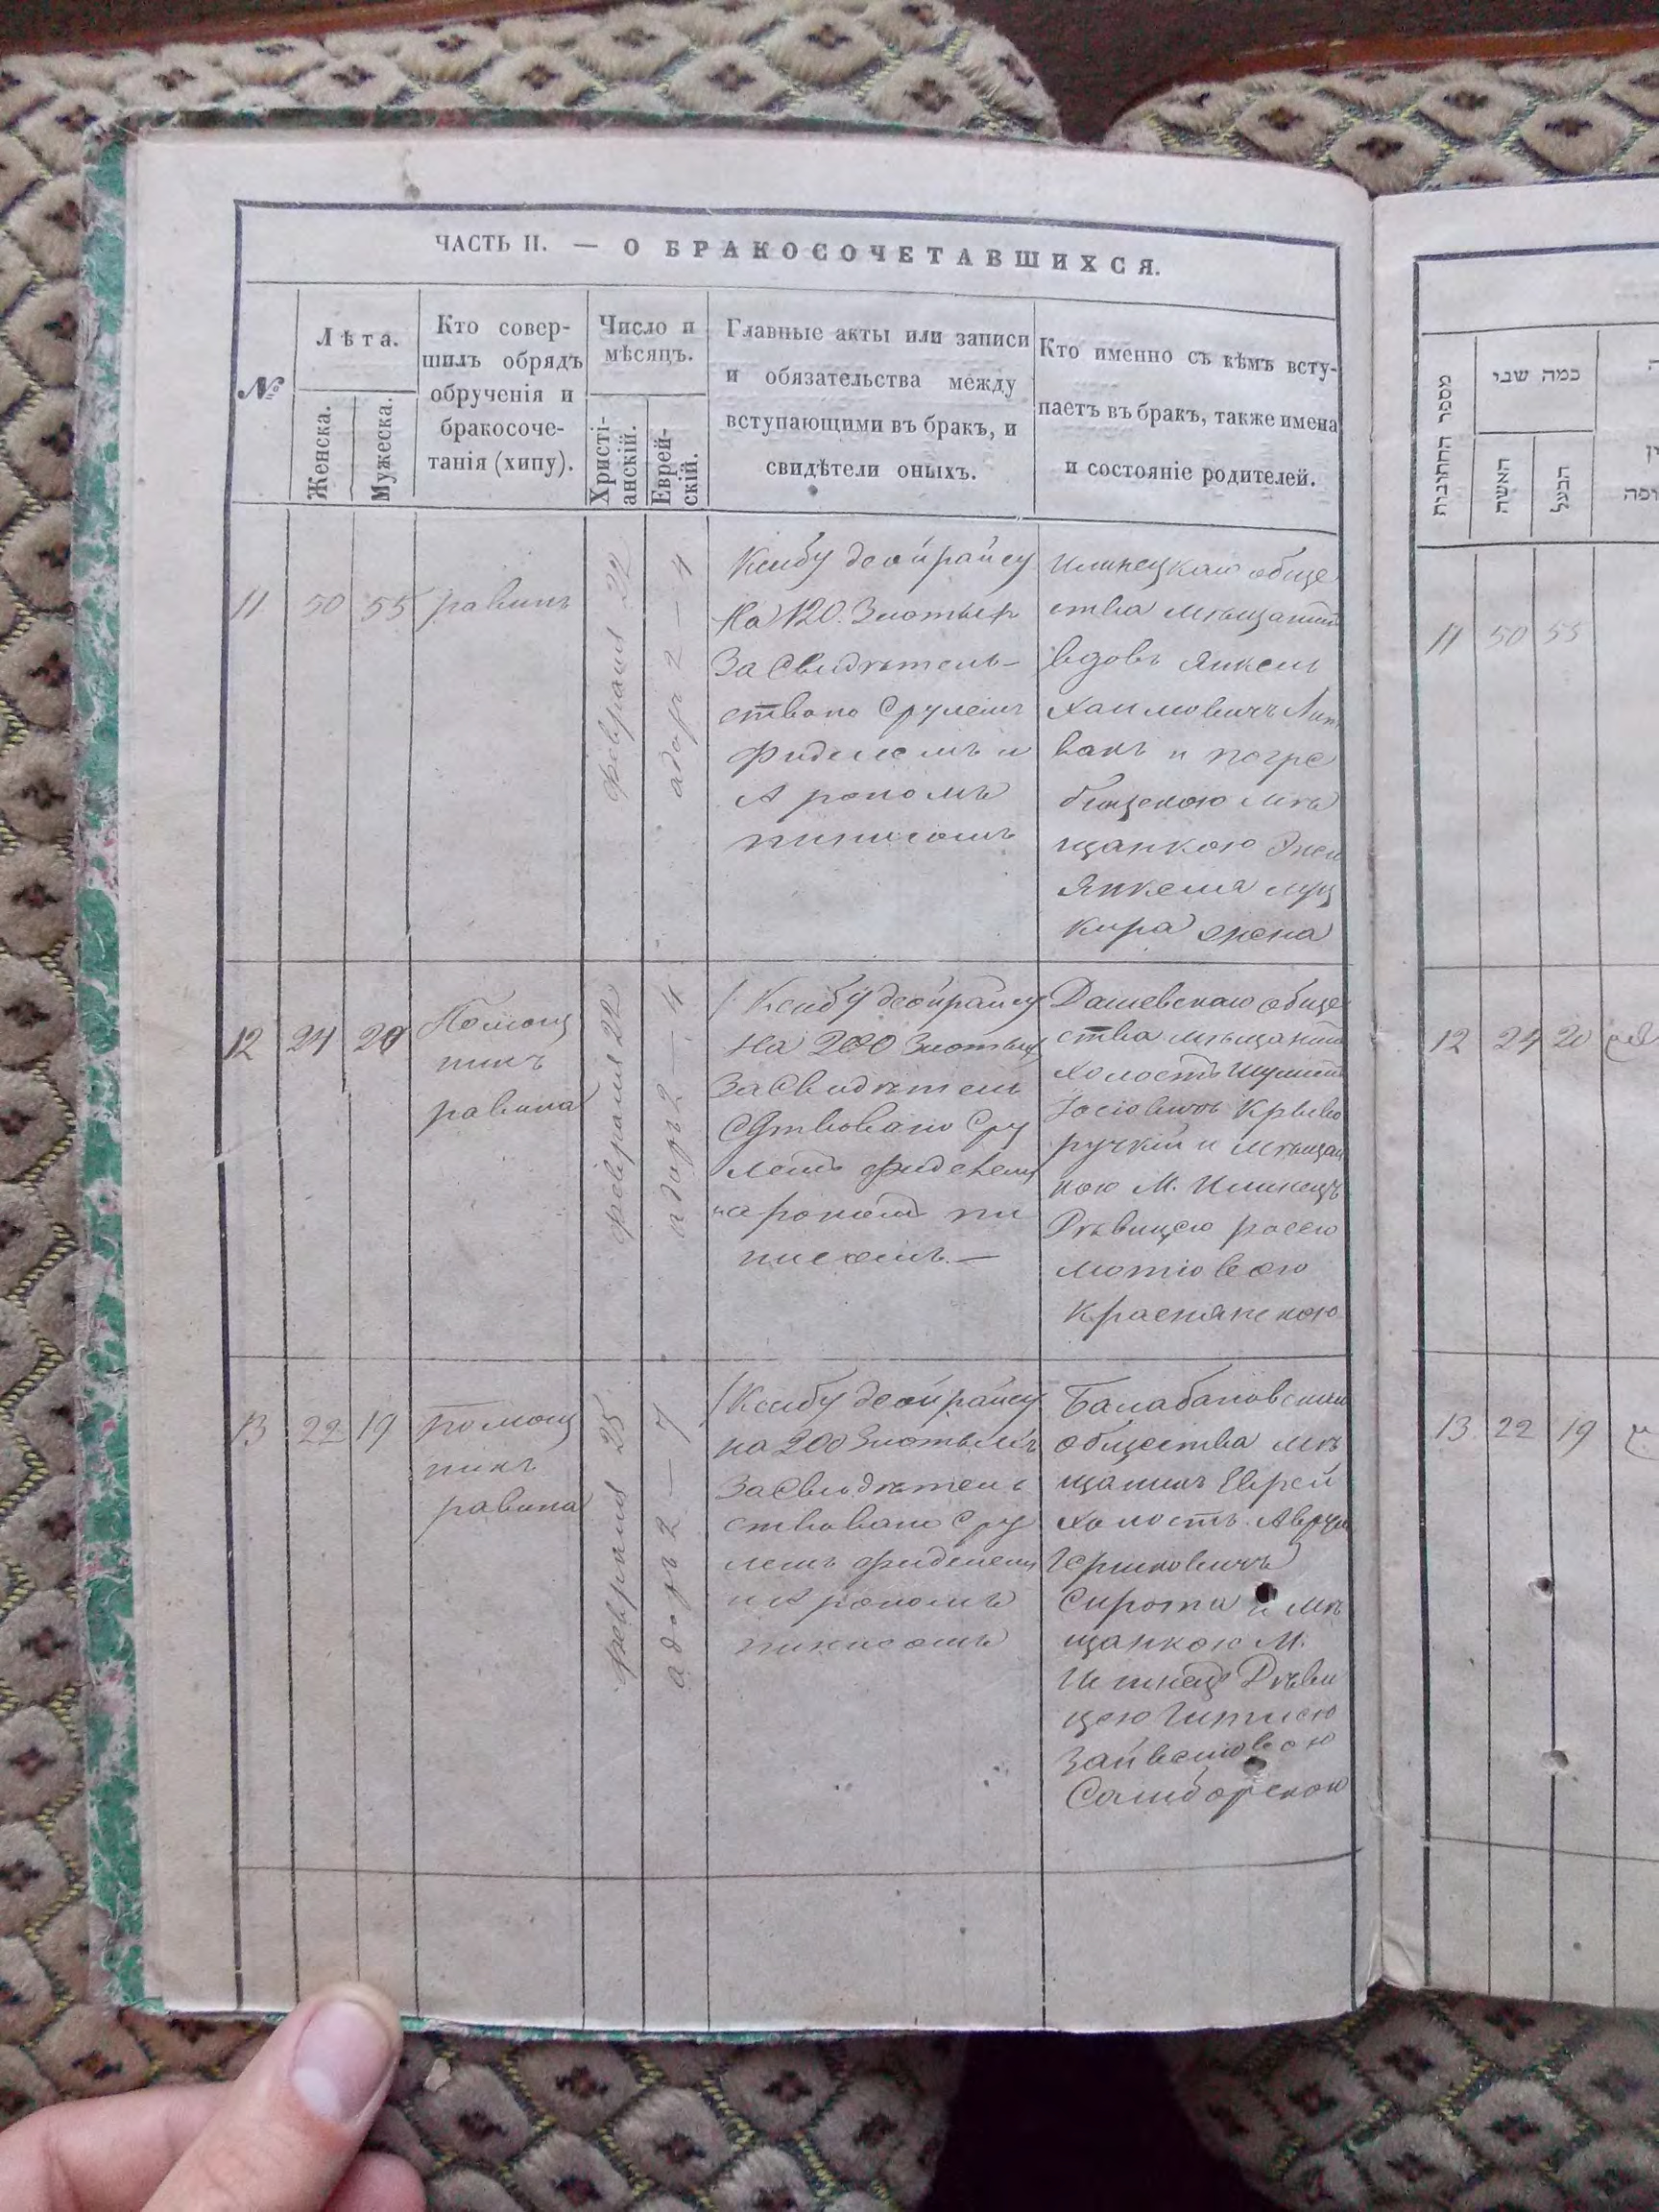 ЧАСТЬ II. — О БРАКОСОЧЕТАВШИХСЯ.
№
Лѣта.
Женска.
Мужеска.
Кто совер-
шилъ обрядъ
обрученія и
бракосоче-
танія (хипу).
Число и
мѣсяцъ.
Христі-
анскій.
Еврей-
скій.
Главные акты или записи
и обязательства между
вступающими въ бракъ, и
свидѣтели оныхъ.
Кто именно съ кѣмъ всту-
паетъ въ бракъ, также имена
и состояніе родителей.
11
50
55
равинъ
февраля 22
адоръ 2 — 4
Ксибу деойрайсу
На 120 Злотыхъ
Засвидѣтель-
ствано Срулемъ
Фиделемъ и
Арономъ
Илинецкаго обще
ства мѣщанинъ
вдовъ Янкель
Хаимовичъ Лит
вакъ и погре
бищскою мѣ
щанкою
Янкеля
жена
12
24
20
Помощ
никъ
равина
февраля 22
адоръ 2 — 4
Ксибу деойрайсу
На 200 Злотыхъ
Засвидѣтель
ствовано Сру
лемъ фиделемъ
и арономъ
Дашевскаго обще
ства мѣщанинъ
холостъ
Іосіовичъ Криво
ручкій и мѣщан
кою М. Илинецъ
Дѣвицею расею
мотіовою
Краснянскою
13
22
19
помощ
никъ
равина
февраля 25
адоръ 2 — 7
Ксибу деойрайсу
на 200 Злотыхъ
Засвидѣтель
ствовано Сру
лемъ фиделемъ
и Арономъ
Балабановскаго
общества мѣ
щанинъ Еврей
холостъ Аврум
Гершковичъ
Сирота и мѣ
щанкою М.
Илинецъ Дѣви
цею
Самборскою
מספר החתונות
כמה שני
האשה
הבעל
11
50
55
12
24
20
13
22
19